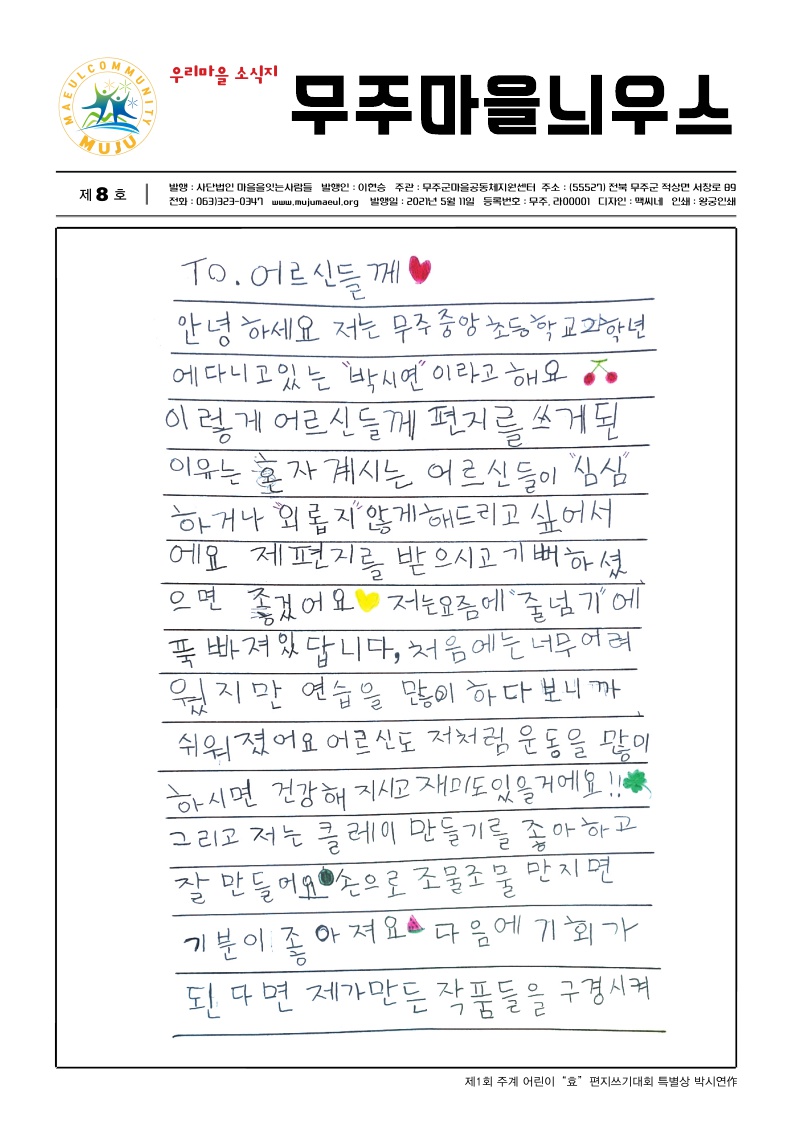 MAEULCOMMUNITY
MUJU
우리마을 소식지
무주마을늬우스
제 8 호
발행 : 사단법인 마을을잇는사람들 발행인 : 이현승 주관 : 무주군마을공동체지원센터 주소 : (55527) 전북 무주군 적상면 서창로 89
전화 : 063)323-0347 www.mujumaeul.org 발행일 : 2021년 5월 11일 등록번호 : 무주, 라00001 디자인 : 맥씨네 인쇄 : 왕궁인쇄
TO. 어르신들께
안녕하세요 저는 무주중앙초등학교 2학년
에다니고있는 "박시연"이라고해요
이렇게 어르신들께 편지를 쓰게된
이유는 혼자계시는 어르신들이 "심심"
하거나 "외롭지"않게해드리고 싶어서
에요 제편지를 받으시고기뻐하셨
으면 좋겠어요 저는요즘에"줄넘기"에
푹빠져있답니다, 처음에는너무어려
웠지만 연습을 많이하다보니까
쉬워졌어요어르신도 저처럼운동을많이
하시면 건강해지시고재미도있을거에요!!
그리고 저는 클레이 만들기를 좋아하고
잘만들어요 손으로 조물조물 만지면
기분이좋아져요 다음에기회가
된다면 제가만든작품들을구경시켜
제1회 주계 어린이 "효" 편지쓰기대회 특별상 박시연作